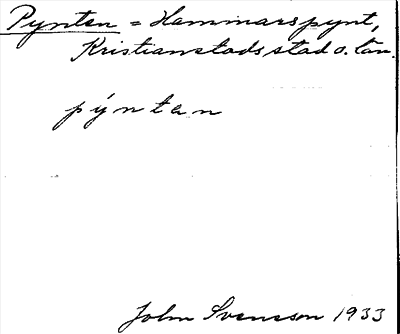 Pynten = Hammarspynt,
Kristianstads stad o. län.
pýntan
John Svensson 1933